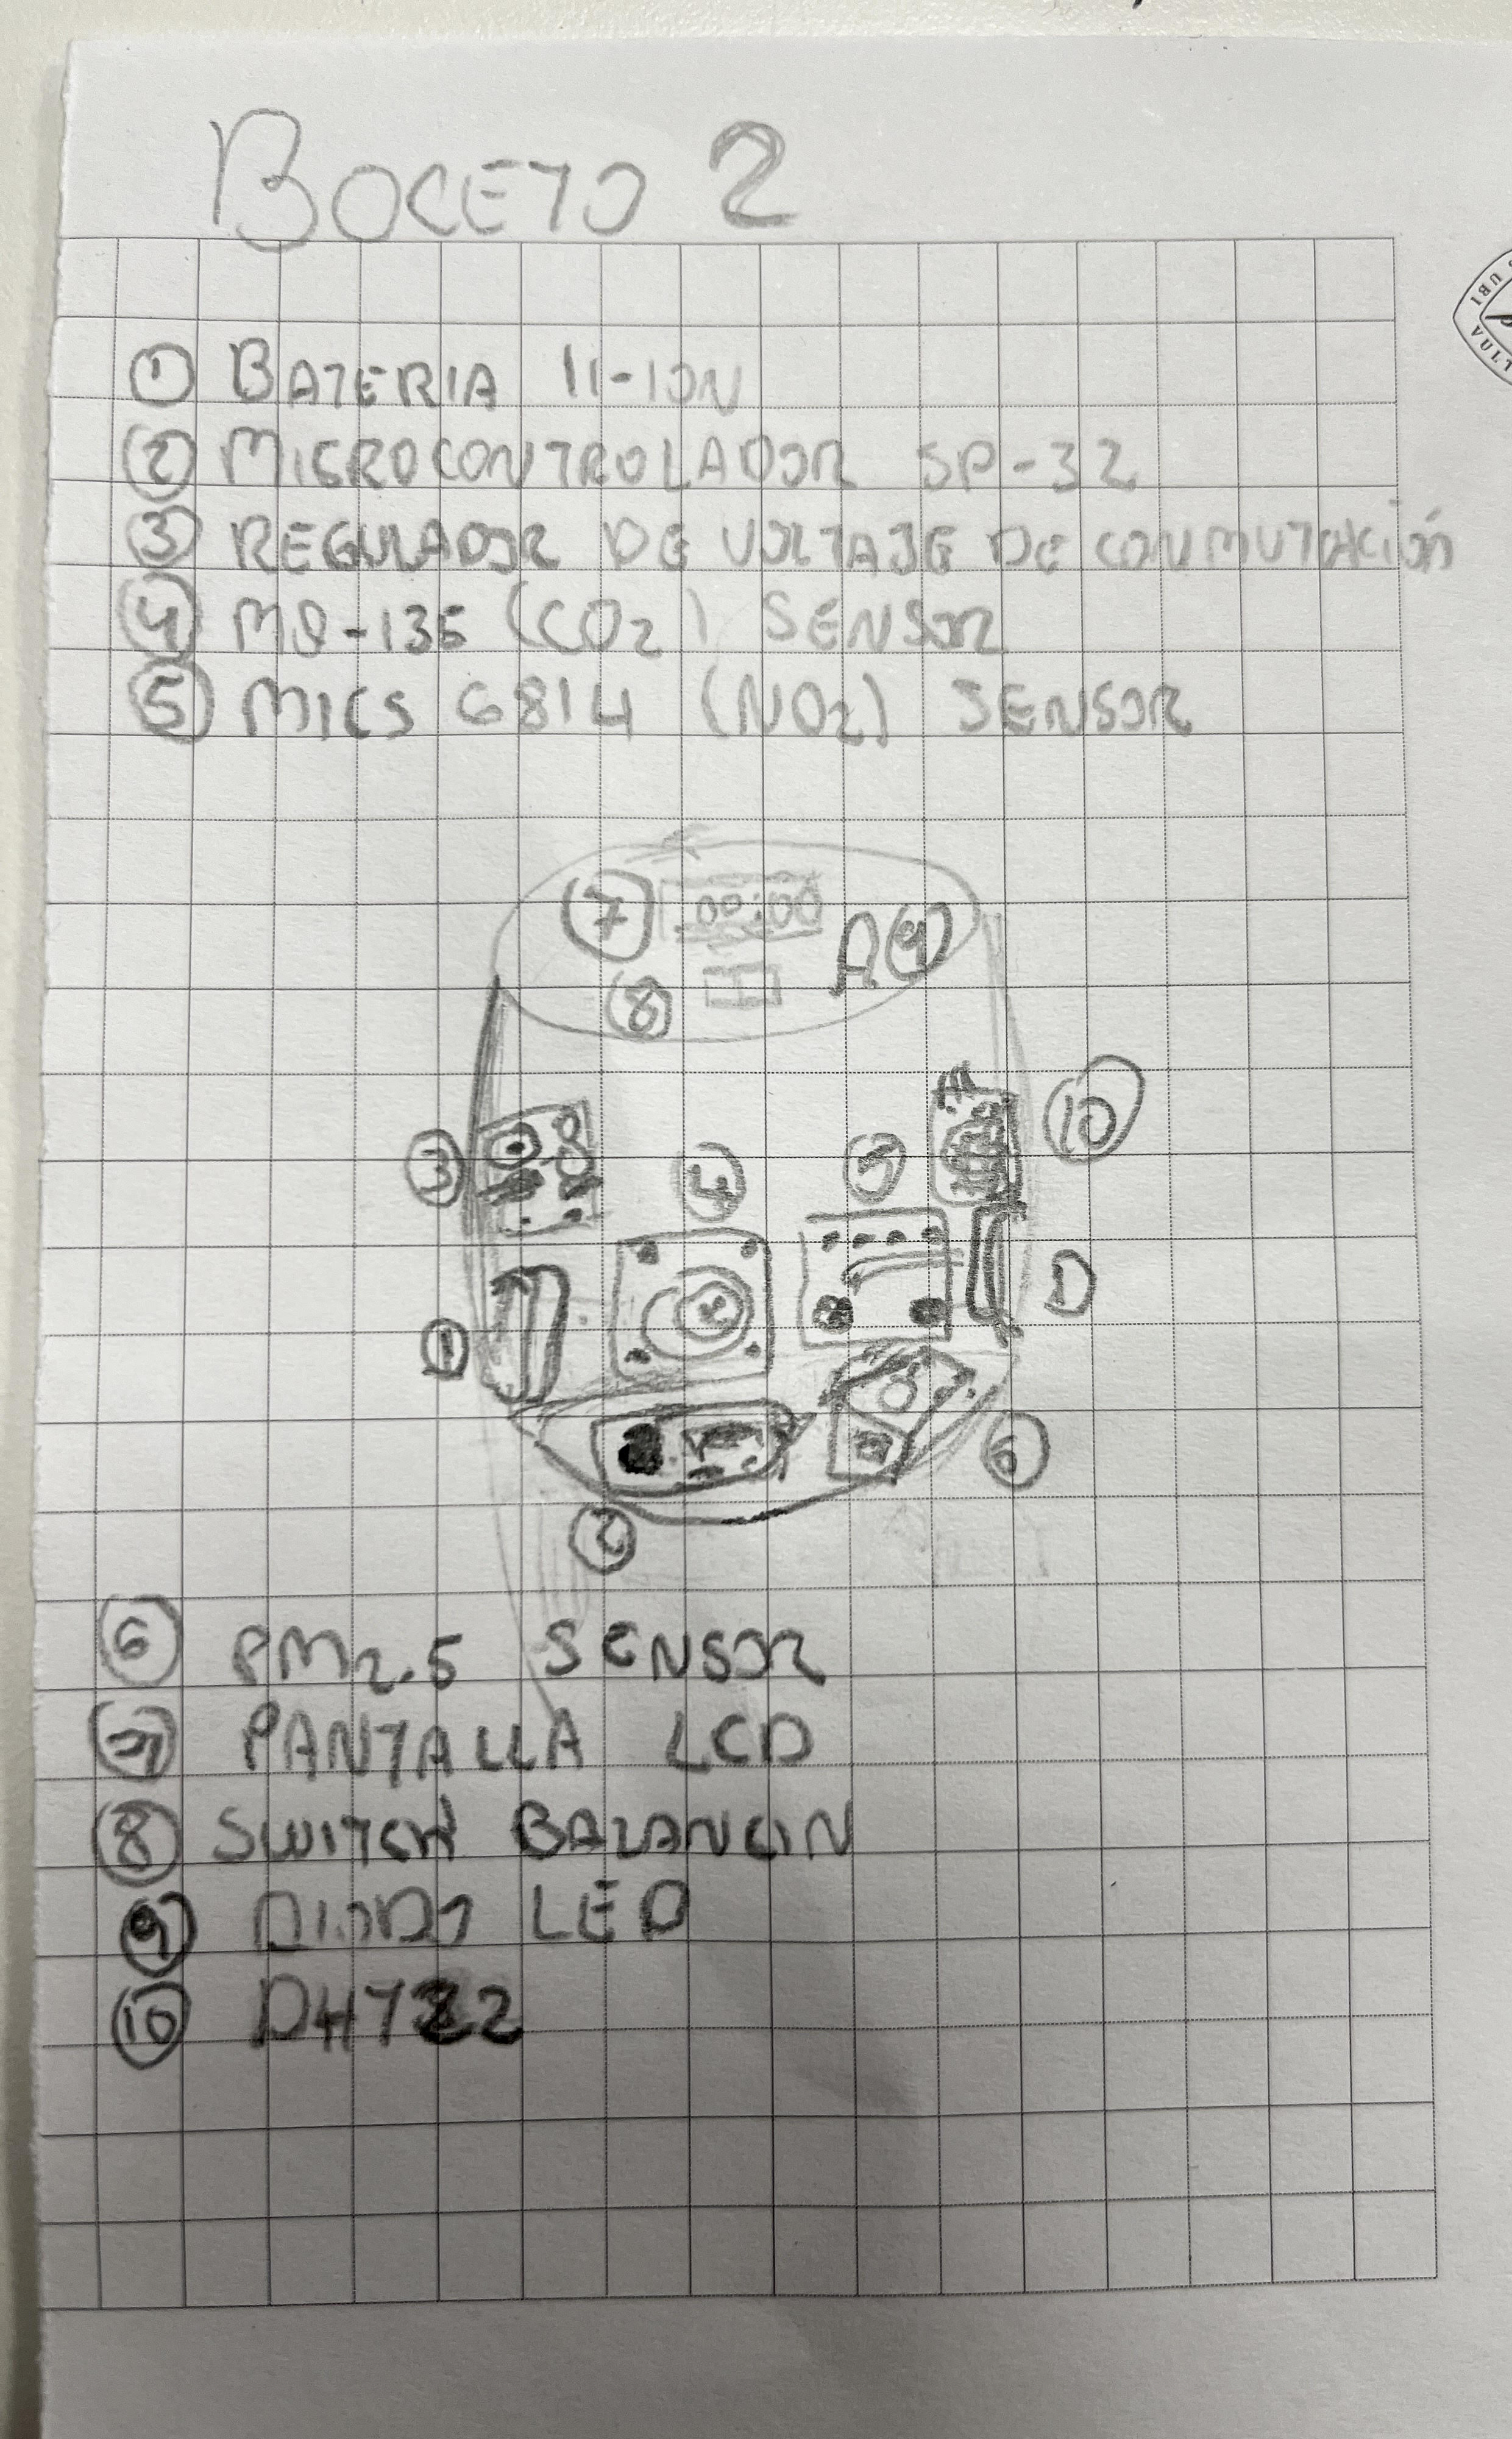 BOCETO 2
① BATERIA II-ION
② MICROCONTROLADOR SP-32
③ REGULADOR DE VOLTAJE DE CONMUTACIÓN
④ MQ-135 (CO₂) SENSOR
⑤ MICS 6814 (NO₂) SENSOR
UBI
⑦ 00:00
⑨
⑧
⑩
③ ④ ⑤
① D
⑥
②
⑥ PM2.5 SENSOR
⑦ PANTALLA LCD
⑧ SWITCH BALANCIN
⑨ DIODO LED
⑩ DHT22